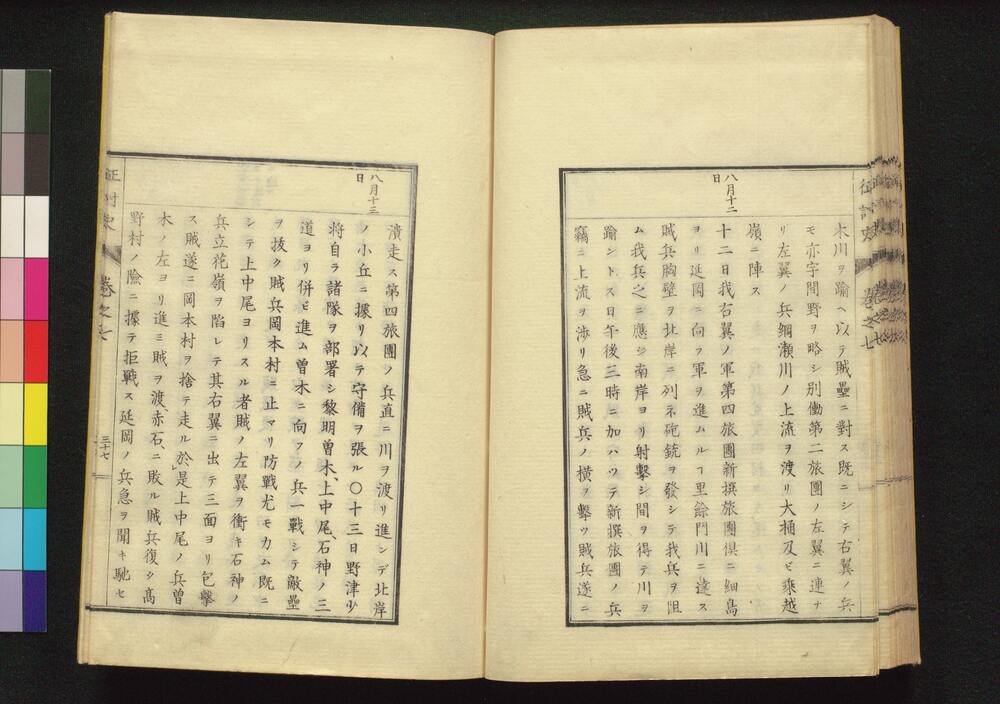 八月十二
日
木川ヲ踰ヘ以テ賊壘ニ對ス既ニシテ右翼ノ兵
モ亦字間野ヲ略シ別働第二旅團ノ左翼ニ連ナ
リ左翼ノ兵綱瀬川ノ上流ヲ渡リ大桶及ビ乘越
嶺ニ陣ス
十二日我右翼ノ軍第四旅團新撰旅團倶ニ細島
ヨリ延岡ニ向フ軍ヲ進ムルヿ里餘門川ニ達ス
賊兵胸壁ヲ北岸ニ列ネ砲銃ヲ發シテ我兵ヲ阻
ム我兵之ニ應ジ南岸ヨリ射擊シ間ヲ得テ川ヲ
踰ントス日午後三時ニ加ハツテ新撰旅團ノ兵
竊ニ上流ヲ涉リ急ニ賊兵ノ橫ヲ擊ツ賊兵遂ニ
征討史
卷之七
八月十三
日
潰走ス第四旅團ノ兵直ニ川ヲ渡リ進ンデ北岸
ノ小丘ニ據リ以テ守備ヲ張ル〇十三日野津少
將自ラ諸隊ヲ部署シ黎明曽木、上中尾、石神ノ三
道ヨリ併ビ進ム曽木ニ向フノ兵一戰シテ敵壘
ヲ拔ク賊兵岡本村ニ止マリ防戰尤モカム既ニ
シテ上中尾ヨリスル者賊ノ左翼ヲ衝キ石神ノ
兵立花嶺ヲ陷レテ其右翼ニ出テ三面ヨリ包擊
ス賊遂ニ岡本村ヲ捨テ走ル於是上中尾ノ兵曽
木ノ左ヨリ進ミ賊ヲ渡、赤石、ニ敗ル賊兵復タ高
野村ノ險ニ據テ拒戰ス延岡ノ兵急ヲ聞キ馳セ
征討史
卷之七
三十七